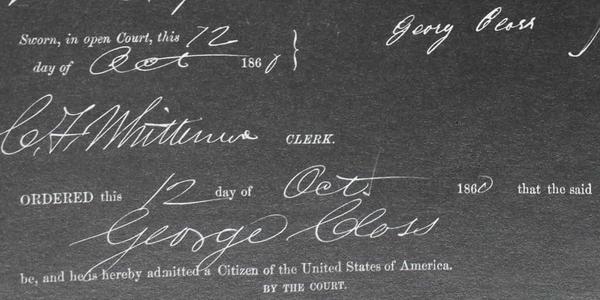 Sworn, in open Court, this 12
Georg Closs
day of Oct 186
C. F. Whittemore CLERK.
ORDERED this 12 day of Oct 1860 that the said
George Closs
be, and he is hereby admitted a Citizen of the United States of America.
BY THE COURT.